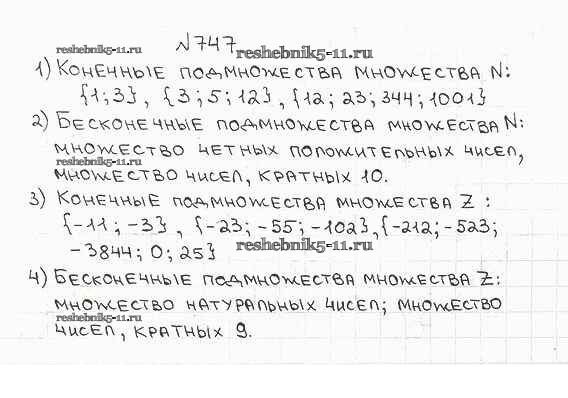 №747
reshebnik5-11.ru
reshebnik5-11.ru
1) Конечные подмножества множества N:
{1; 3}, {3; 5; 12}, {12; 23; 344; 1001}
2) Бесконечные подмножества множества N:
множество четных положительных чисел,
reshebnik5-11.ru
множество чисел, кратных 10.
3) Конечные подмножества множества Z :
{-11; -3}, {-23; -55; -102}, {-212; -523;
-3844; 0; 25}
reshebnik5-11.ru
4) Бесконечные подмножества множества Z:
множество натуральных чисел; множество
reshebnik5-11.ru
чисел, кратных 9.